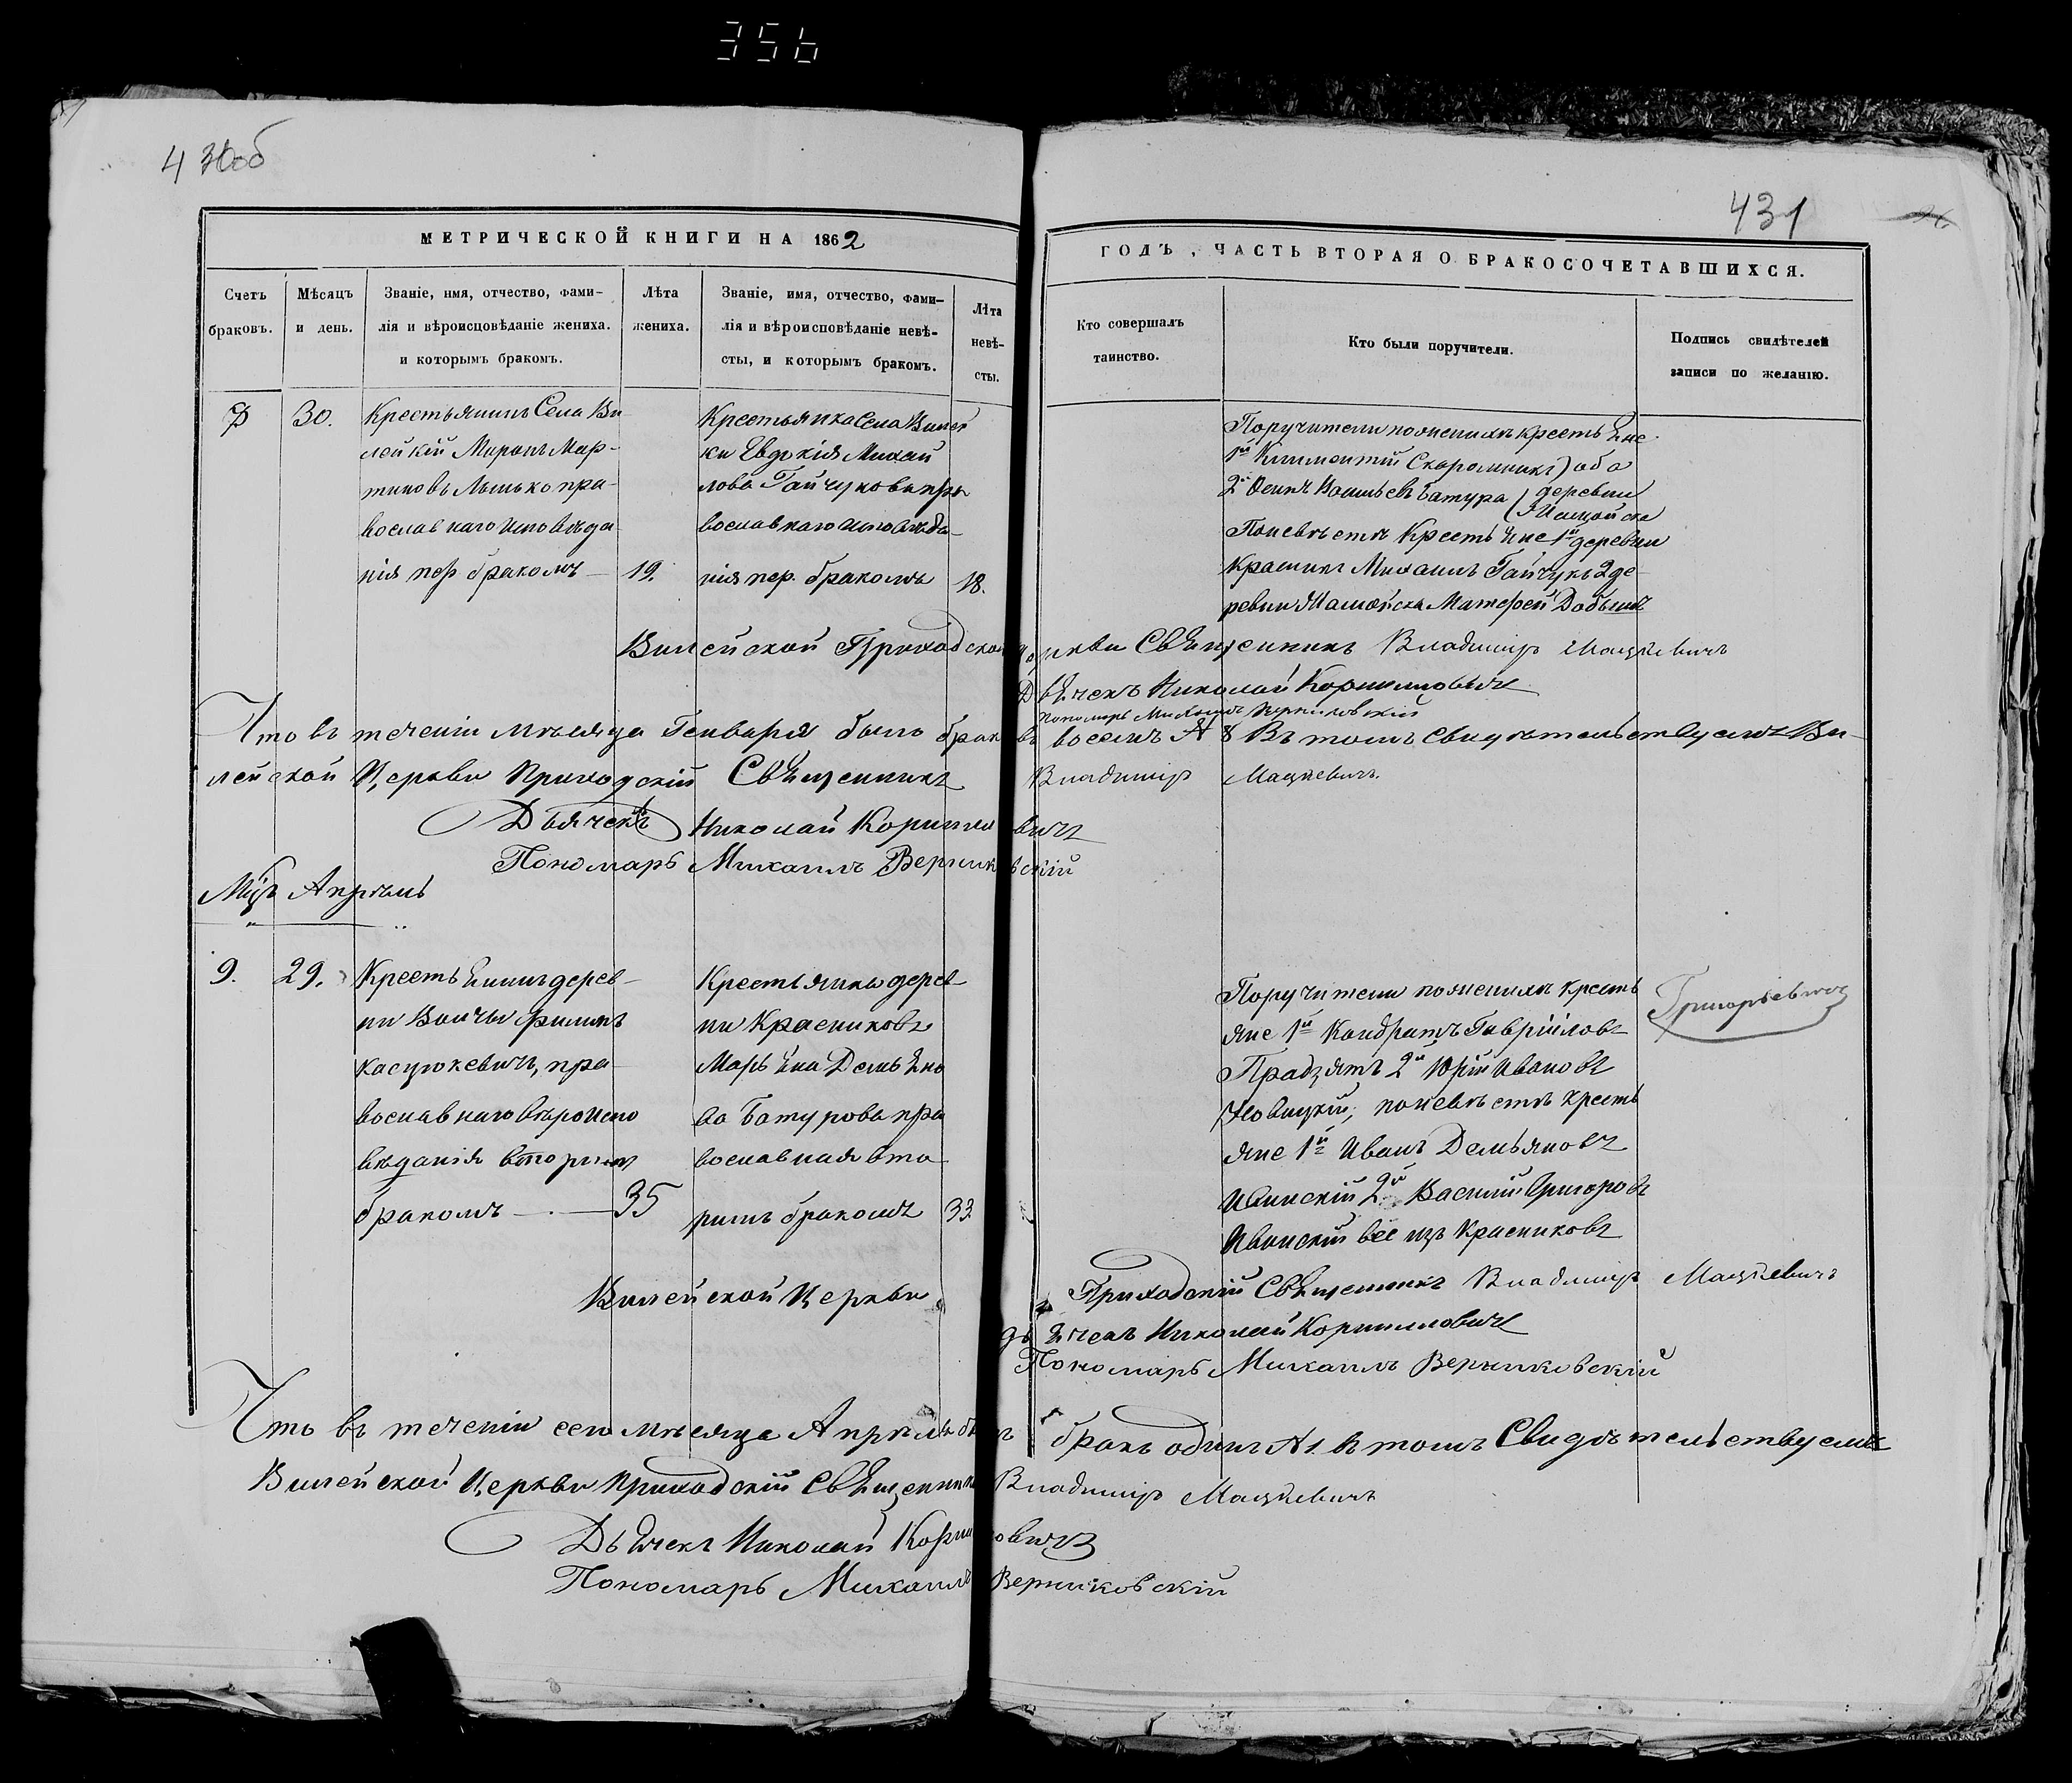 356
430об
431
МЕТРИЧЕСКОЙ КНИГИ НА 1862
ГОДЪ, ЧАСТЬ ВТОРАЯ О БРАКОСОЧЕТАВШИХСЯ.
Счетъ браковъ.
Мѣсяцъ и день.
Званіе, имя, отчество, фами-
лія и вѣроисповѣданіе жениха.
и которымъ бракомъ.
Лѣта жениха.
Званіе, имя, отчество, фами-
лія и вѣроисповѣданіе невѣ-
сты, и которымъ бракомъ.
Лѣта
невѣ-
сты.
Кто совершалъ
таинство.
Кто были поручители.
Подпись свидѣтелей
записи по желанію.
30.
Крестьянинъ Села Ви
лейкій Миронъ Мар-
тиновъ Мышько пра-
вославнаго исповѣда
нія пер бракомъ
19.
Крестьянка Села Вилей
ки Евдокія Михай
лова Гайчукова пра
вославнаго исповѣда-
нія пер. бракомъ
18.
Поручители по женихѣ крестьяне
1й Климентій Скоромникъ) оба
2й Осипъ Васильевъ Батура ( деревни
По невѣстѣ Крестьяне 1й деревни
Красникъ Михаилъ Гайчукъ 2 де
ревни Матфей
Вилейской Приходской Церкви Священникъ Владиміръ Мацкевичъ
Дьячекъ Николай Корниловичъ
пономарь Михаилъ Верниковскій
Что въ теченіи мѣсяца Генваря было браковъ восемь № 8 Въ томъ свидѣтельствуемъ Ви-
лейской Церкви Приходскій Священникъ Владиміръ Мацкевичъ.
Дьячекъ Николай Корниловичъ
Пономарь Михаилъ Верниковскій
Мцъ Апрѣль
9.
29.
Крестьянинъ дерев-
ни Воичи Филипъ
Касцюкевичъ, пра-
вославнаго вѣроиспо
вѣданія вторымъ
бракомъ
35
Крестьянка дерев-
ни Красниковъ
Марьяна Демьяно
ва Батурова пра
вославная вто
рымъ бракомъ
33.
Поручители по женихѣ кресть
яне 1й Кондратъ Гаврііловъ
Прадзятъ 2й Юрій Ивановъ
Новицкій, по невѣстѣ кресть
яне 1й Иванъ Демьяновъ
Ивинскій 2й Василій Григоровъ
Ивинскій все изъ Красниковъ
Григорьевичъ
Вилейской Церкви Приходскій Священникъ Владиміръ Мацкевичъ
Дьячекъ Николай Корниловичъ
Пономарь Михаилъ Верниковскій
Что въ теченіи сего мѣсяца Апрѣля былъ бракъ одинъ № 1 въ томъ Свидѣтельствуемъ
Вилейской Церкви Приходскій Священникъ Владиміръ Мацкевичъ
Дьячекъ Николай Корниловичъ
Пономарь Михаилъ Верниковскій